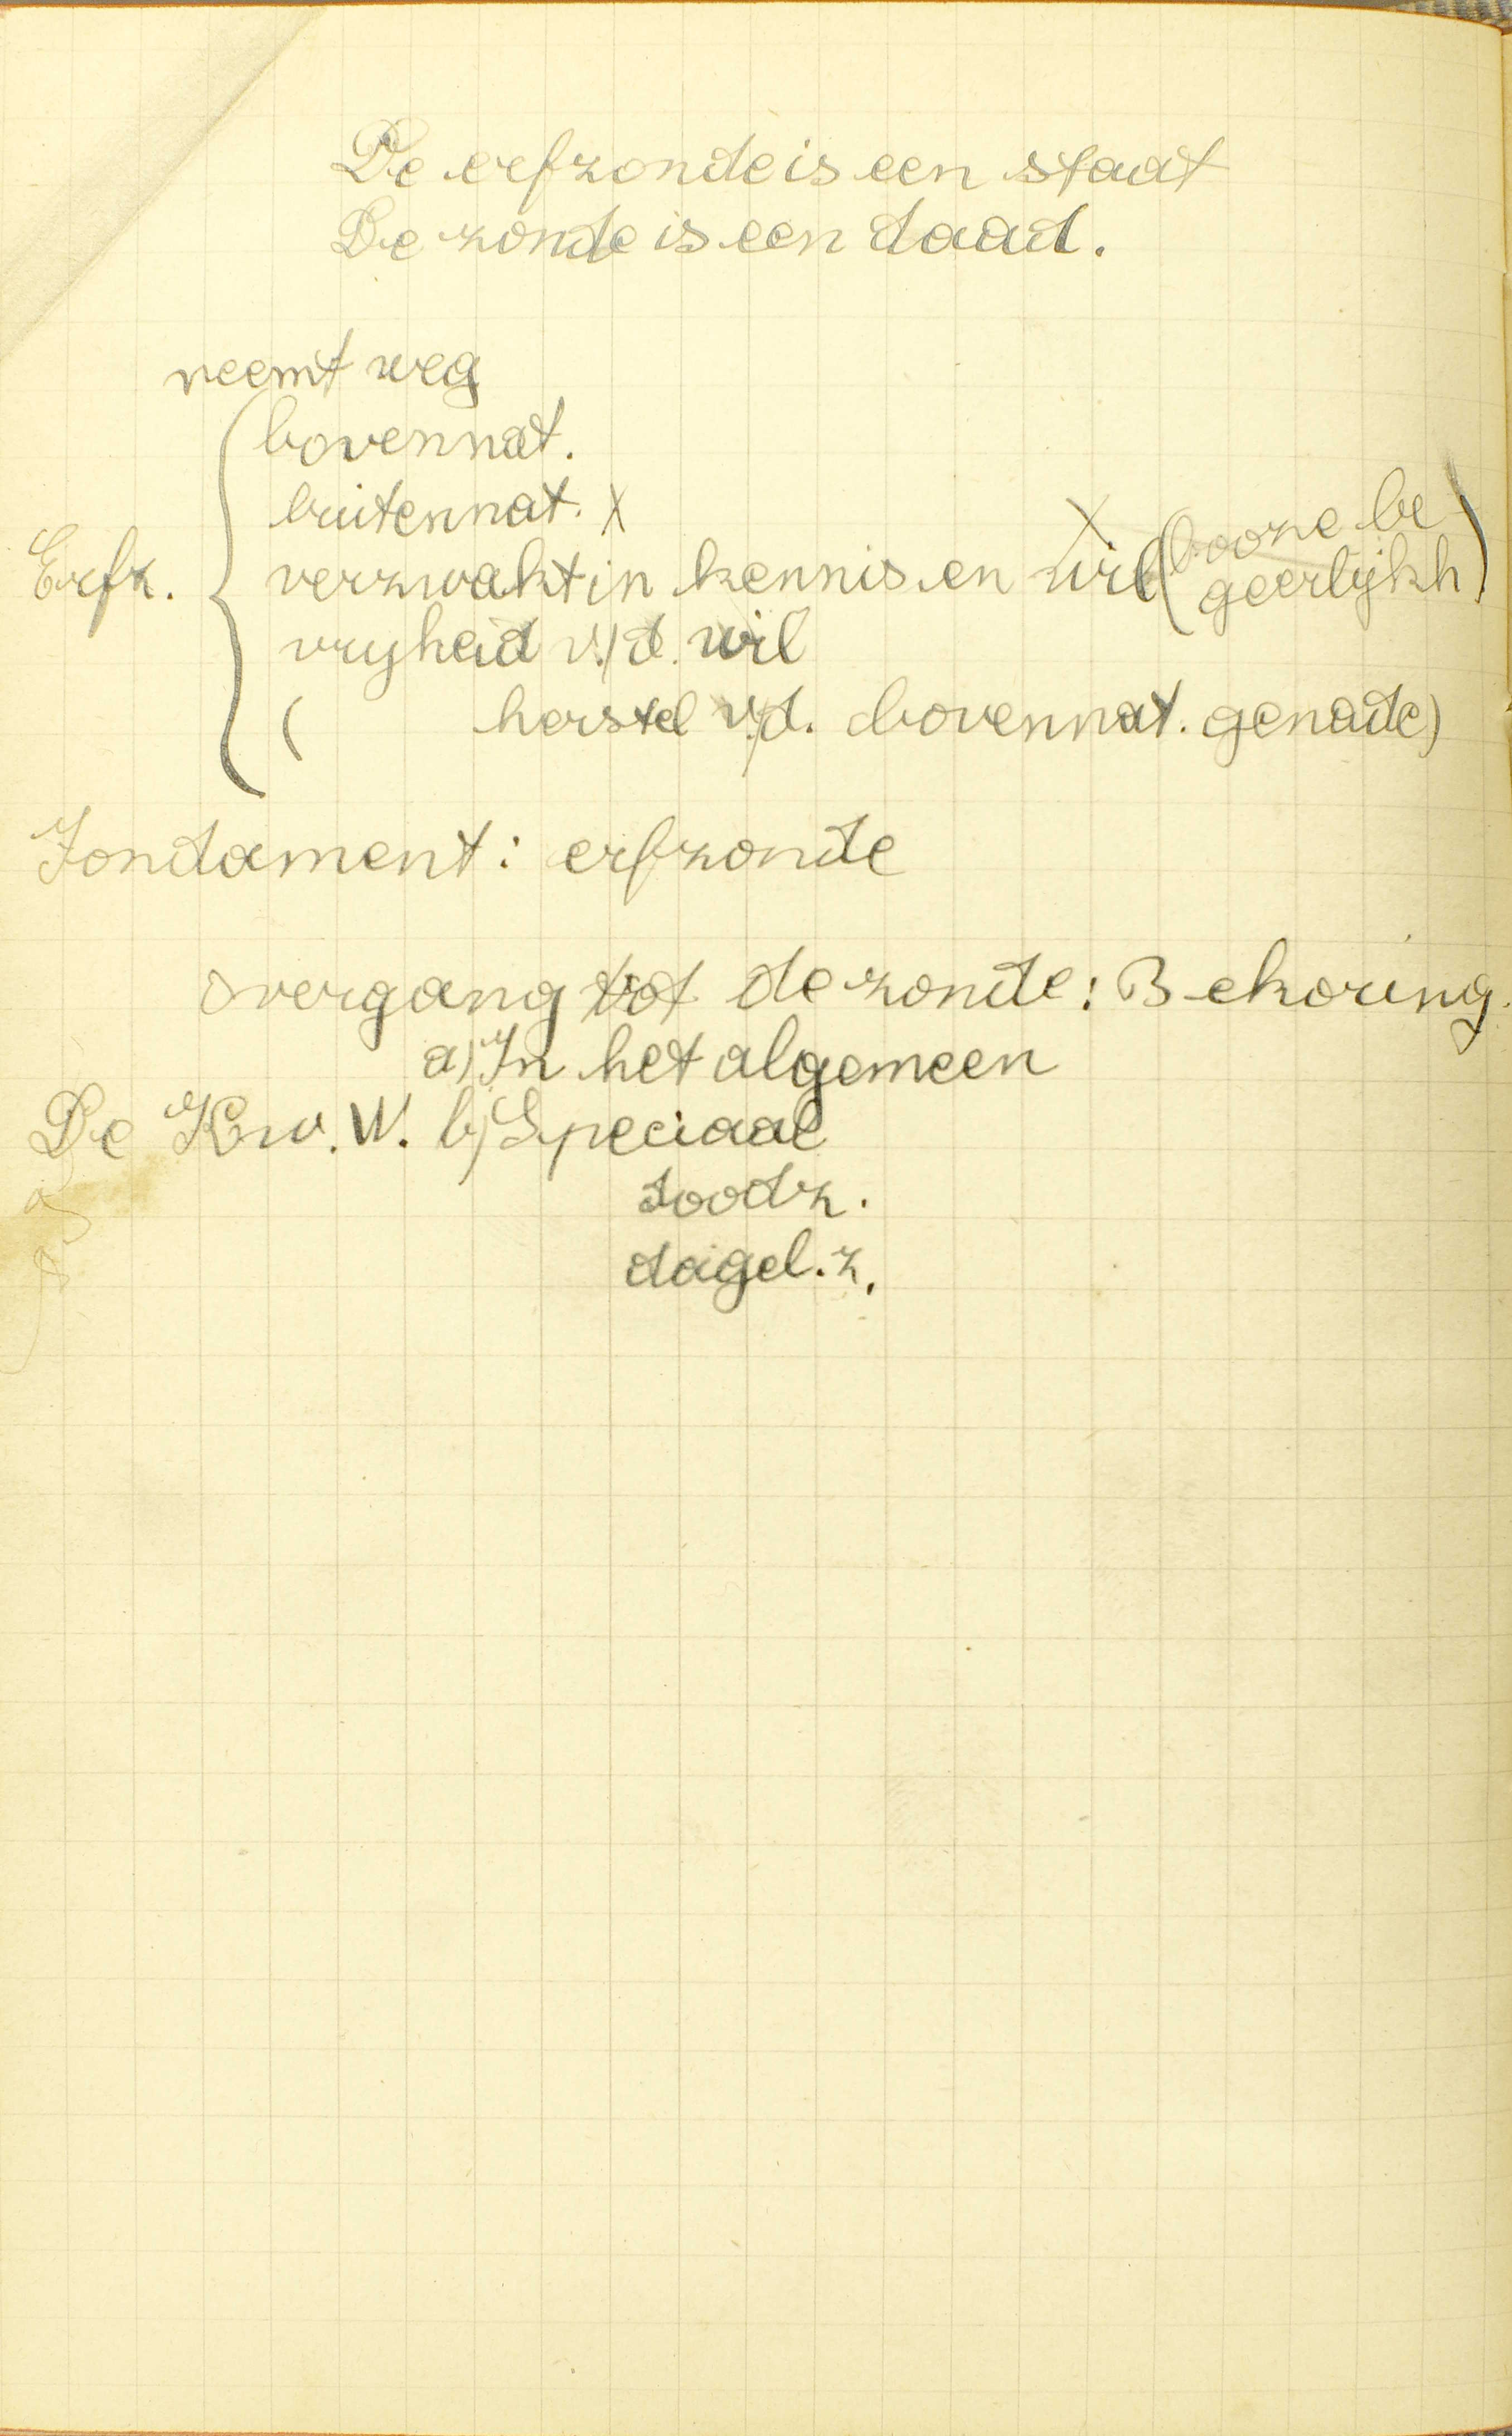 De erfzonde is een staat
De zonde is een daad.
neemt weg
bovennat.
buitennat. X
Erfz. { verzwakt in kennis en wil X (booze be-
geerlijkh)
vryheid v/d. wil
( herstel v/d. bovennat. genade)
Fondament: erfzonde
overgang tot de zonde: Bekoring.
a) In het algemeen
De Kw. W. b) Speciaal
doodz.
dagel. z.